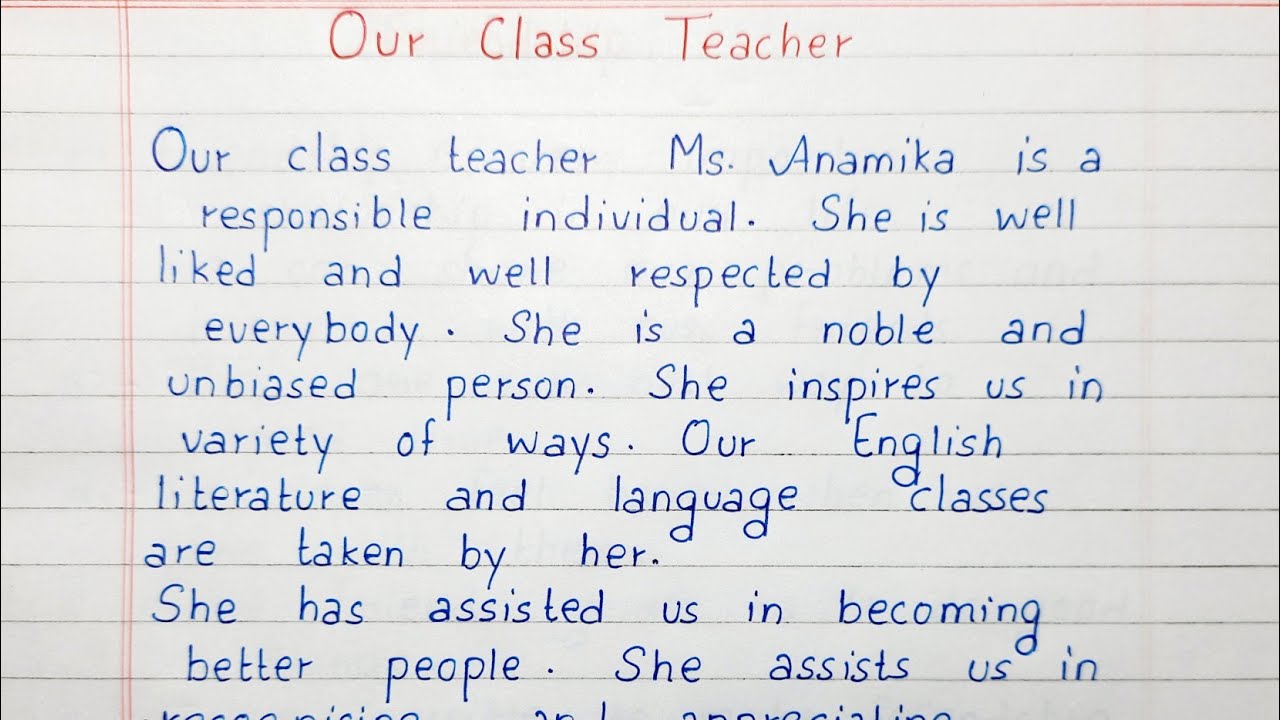 Our Class Teacher
Our class teacher Ms. Anamika is a
responsible individual. She is well
liked and well respected by
everybody. She is a noble and
unbiased person. She inspires us in
variety of ways. Our English
literature and language classes
are taken by her.
She has assisted us in becoming
better people. She assists us in
recognising and appreciating